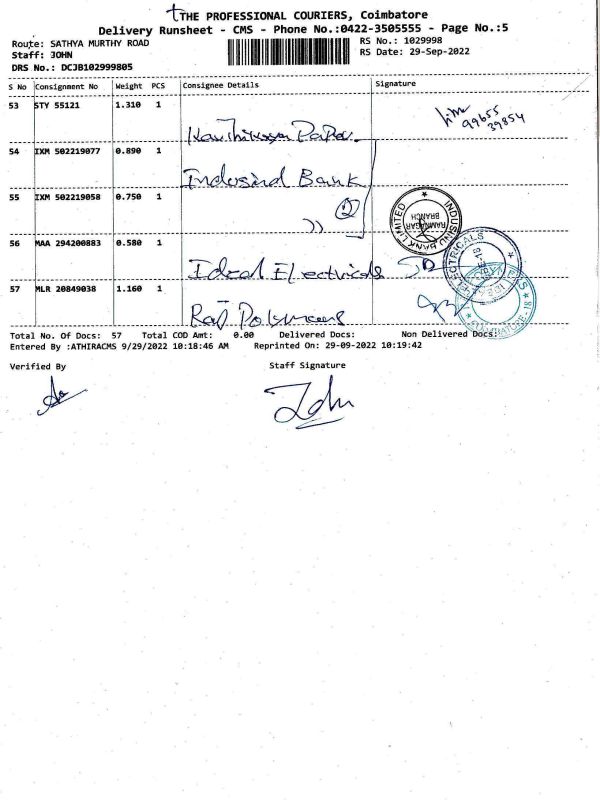 THE PROFESSIONAL COURIERS, Coimbatore
Delivery Runsheet - CMS - Phone No.:0422-3505555 - Page No.:5
Route: SATHYA MURTHY ROAD
Staff: JOHN
DRS No.: DCJB102999805
RS No.: 1029998
RS Date: 29-Sep-2022
S No Consignment No Weight PCS Consignee Details Signature
53 STY 55121 1.310 1
99655
39854
54 IXM 502219077 0.890 1 Indusind Bank
55 IXM 502219058 0.750 1 ,,
INDUSIND BANK LIMITED
RAMNAGAR
BRANCH
56 MAA 294200883 0.580 1 Ideal Electricals
ELECTRICALS
57 MLR 20849038 1.160 1 Raj Polymers
COIMBATORE-18
Total No. Of Docs: 57 Total COD Amt: 0.00 Delivered Docs: Non Delivered Docs:
Entered By :ATHIRACMS 9/29/2022 10:18:46 AM Reprinted On: 29-09-2022 10:19:42
Verified By Staff Signature
John